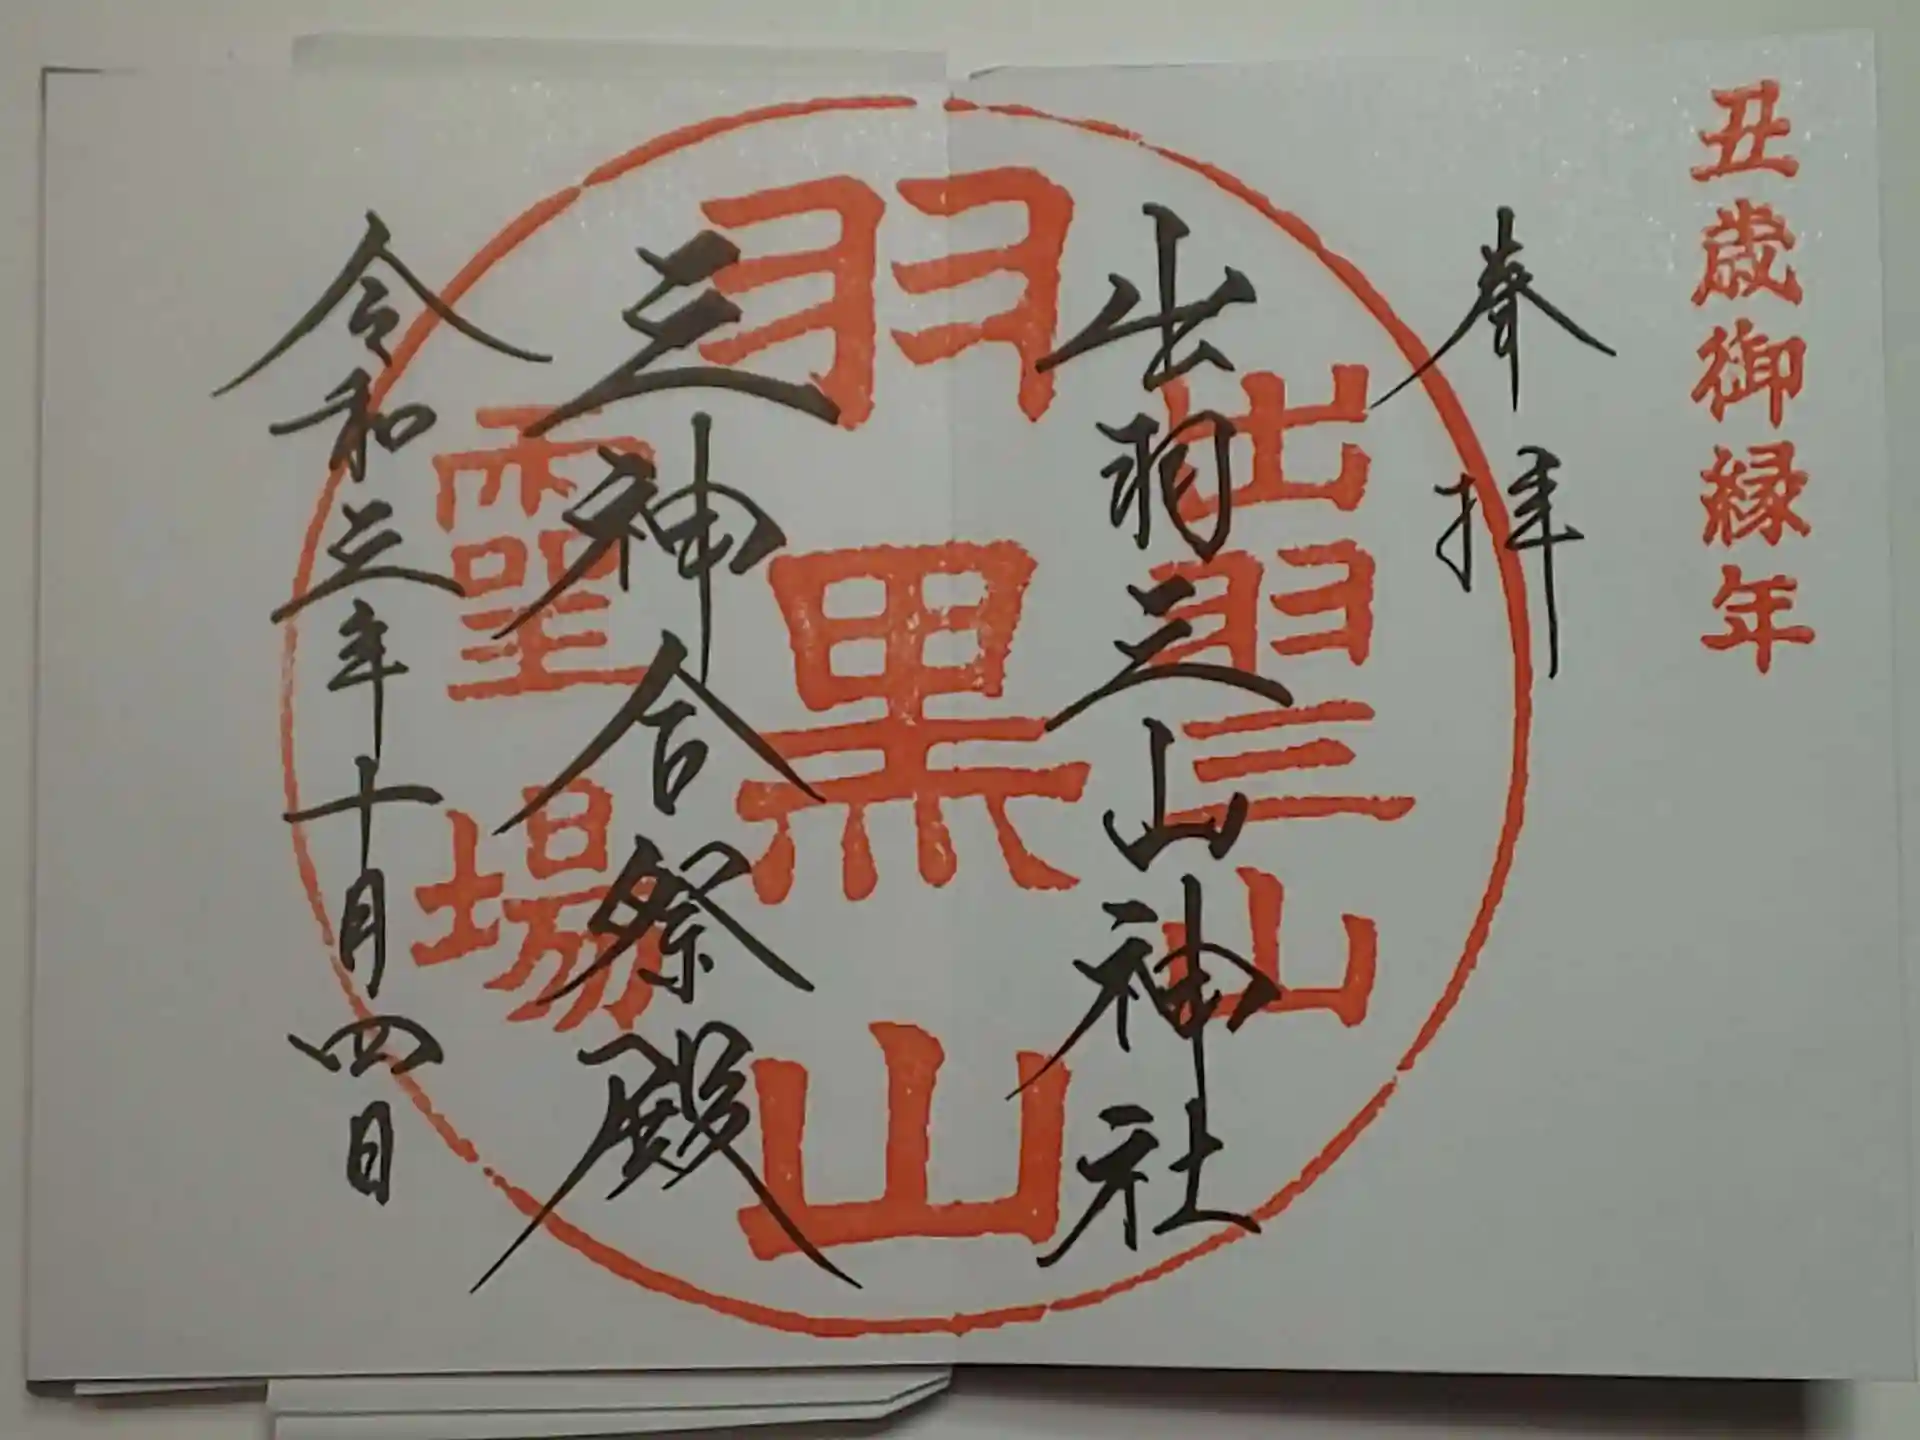 丑歳御縁年
奉拝
出羽三山神社
三神合祭殿
令和三年十月四日
出羽三山
羽黒山
霊場